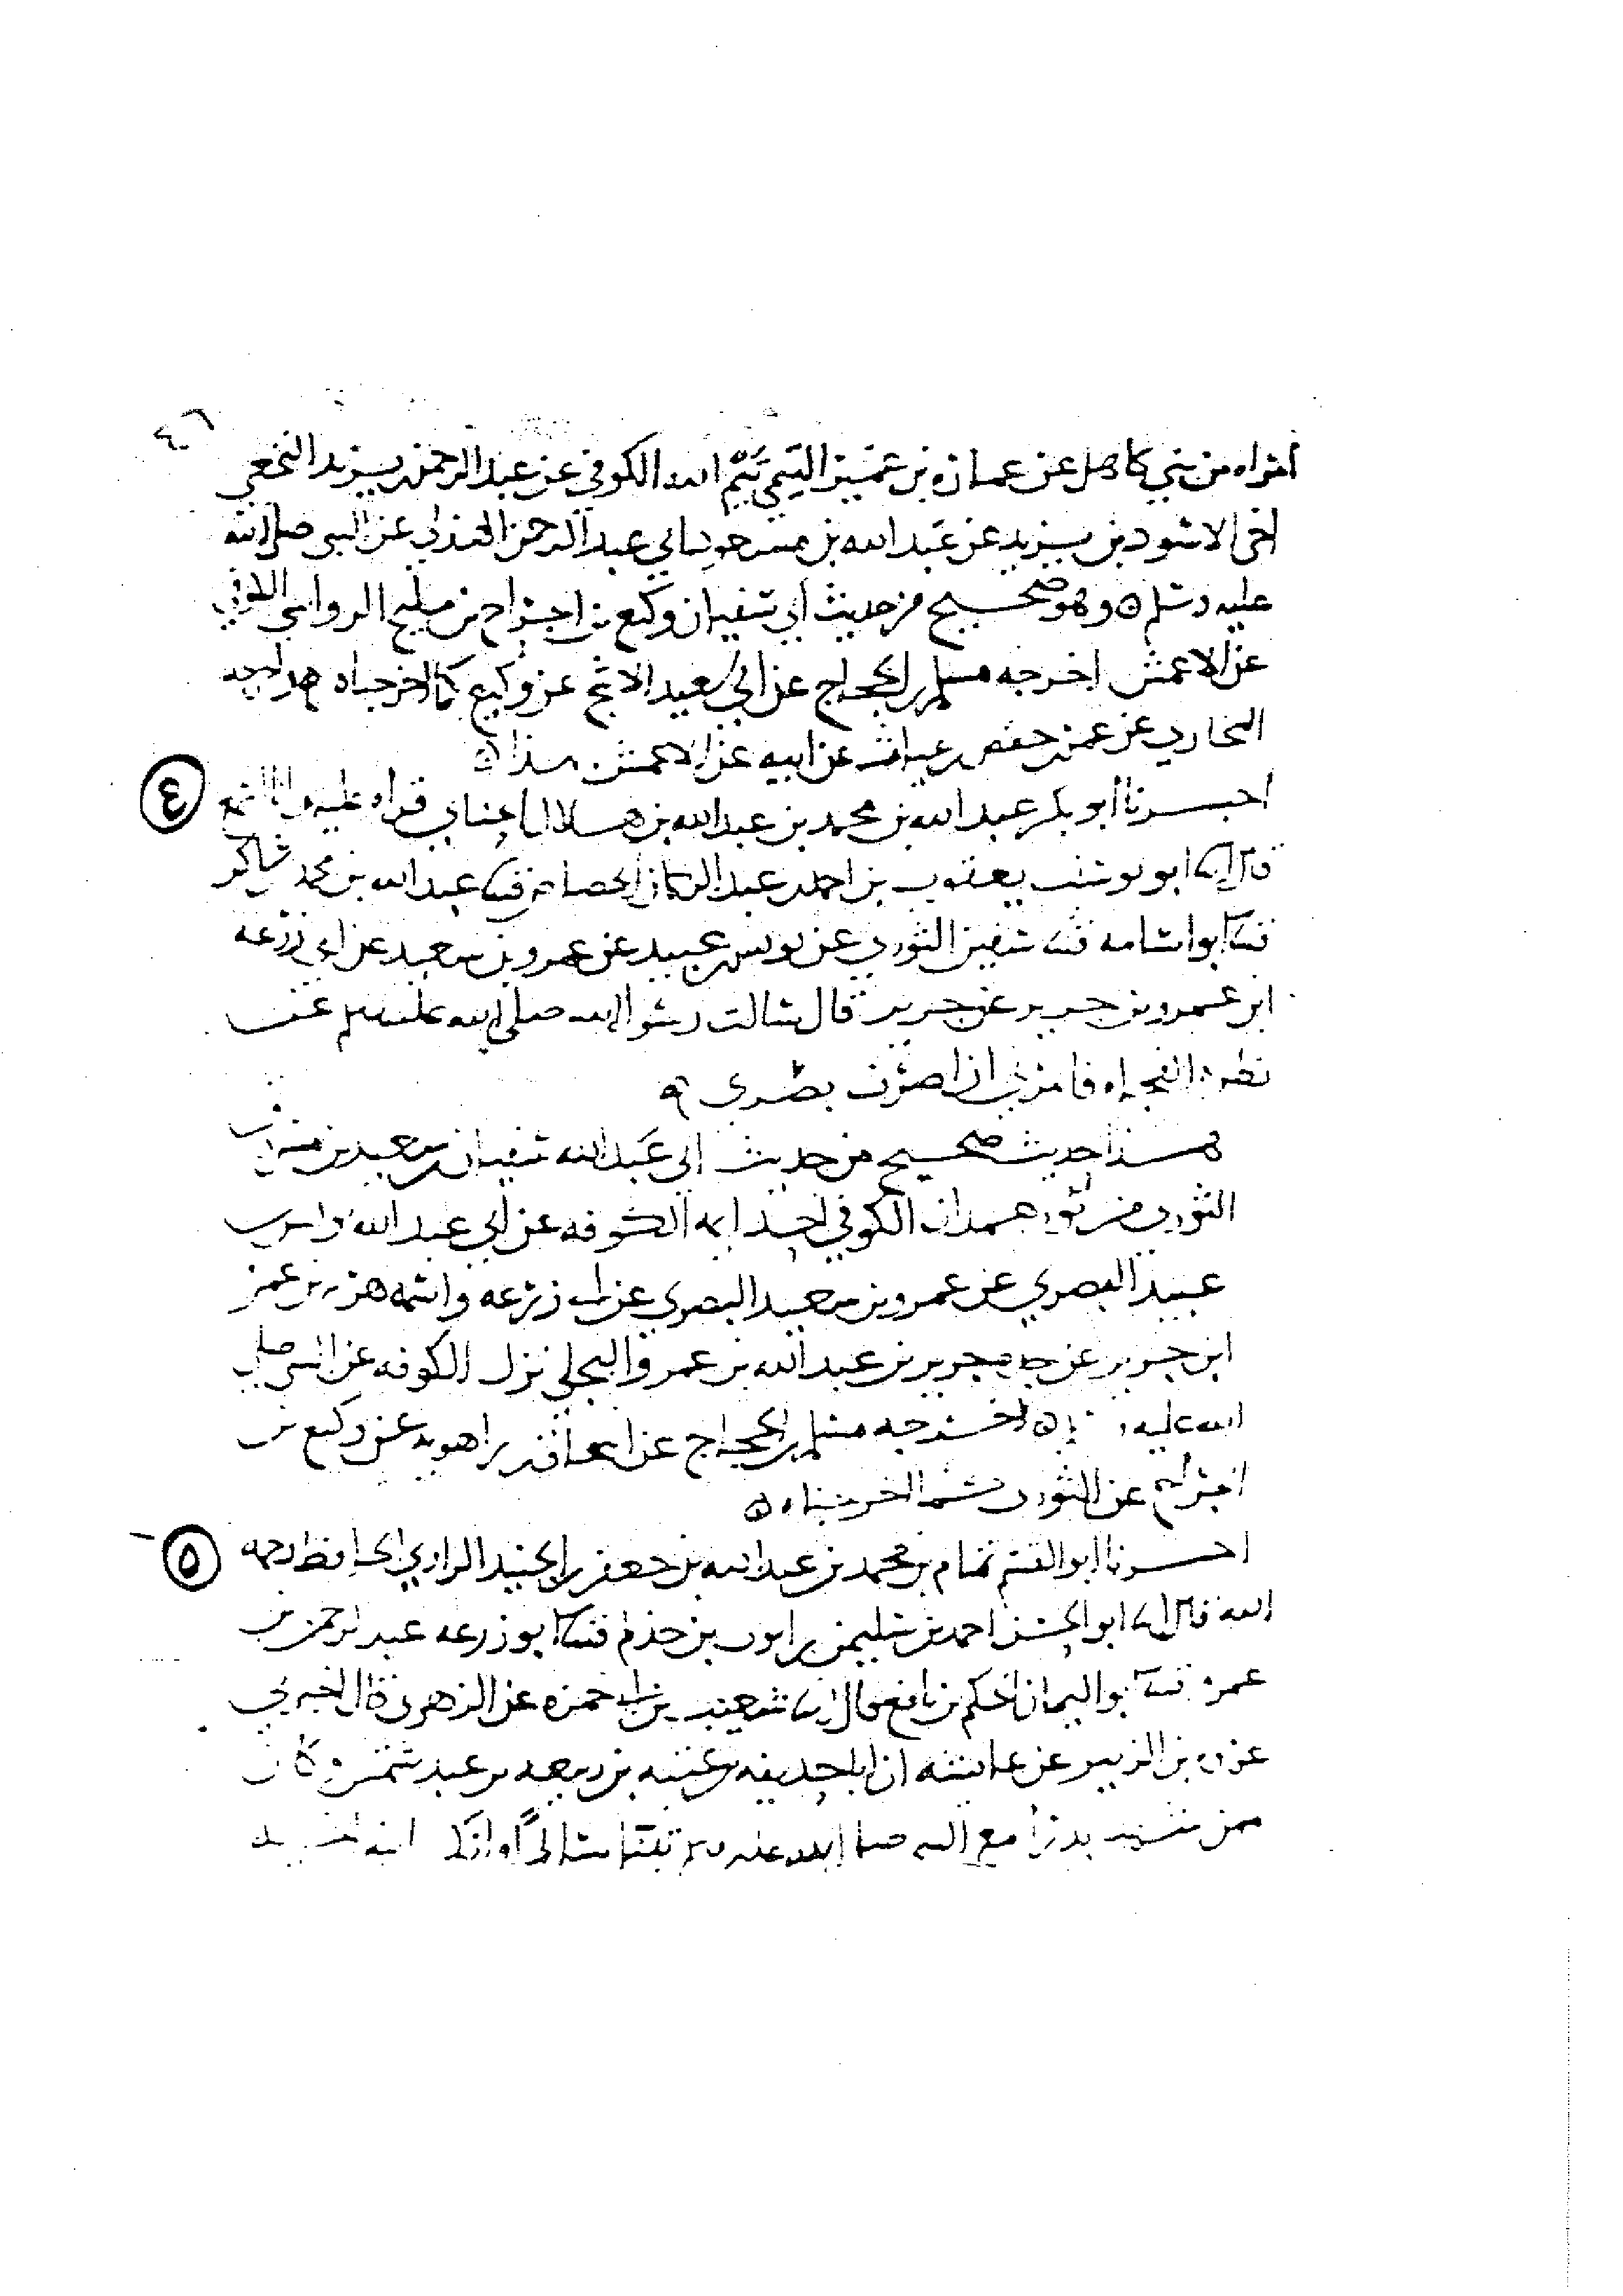 ٤٦
امراه من بني كاهل عن عماره بن عمير التيمي تيم الله الكوفي عن عبد الرحمن بن يزيد النخعي
اخي الاسود بن يزيد عن عبد الله بن مسعود ابي عبد الرحمن الهذلي عن النبي صلى الله
عليه وسلم ه وهو صحيح من حديث ابي سفيان وكيع بن الجراح بن مليح الرواسي الكوفي
عن الاعمش اخرجه مسلم بن الحجاج عن ابي سعيد الاشج عن وكيع كما اخرجناه
البخاري عن عمر بن حفص بن غياث عن ابيه عن الاعمش ه
٤
اخبرنا ابو بكر عبد الله بن محمد بن عبد الله بن هلال الحنائي قراه عليه وانا اسمع
قال ابنا ابو يوسف يعقوب بن احمد بن عبد الرحمن الجصاص قثنا عبد الله بن محمد بن شاكر
قثنا ابو اسامه قثنا سفين الثوري عن يونس بن عبيد عن عمرو بن سعيد عن ابي زرعه
ابن عمرو بن جرير عن جرير قال سالت رسول الله صلى الله عليه وسلم عن
نظره الفجاه فامرني ان اصرف بصري ه
هذا حديث صحيح من حديث ابي عبد الله سفيان بن سعيد بن مسروق
الثوري من ثور همدان الكوفي احد ايمه الكوفه عن ابي عبد الله يونس بن
عبيد البصري عن عمرو بن سعيد البصري عن ابي زرعه واسمه هرم بن عمرو
ابن جرير عن جده جرير بن عبد الله بن عمرو البجلي نزل الكوفه عن النبي صلى
الله عليه وسلم ه اخرجه مسلم بن الحجاج عن اسحاق بن راهويه عن وكيع بن
الجراح عن الثوري كما اخرجناه ه
٥
اخبرنا ابو القسم تمام بن محمد بن عبد الله بن جعفر بن الجنيد الرازي الحافظ رحمه
الله قال ابنا ابو الحسن احمد بن سليمن بن ايوب بن حذلم قثنا ابو زرعه عبد الرحمن بن
عمرو قثنا ابو اليمان الحكم بن نافع قال ابنا شعيب بن ابي حمزه عن الزهري قال اخبرني
عروه بن الزبير عن عايشه ان ابا حذيفه بن عتبه بن ربيعه بن عبد شمس وكان
ممن شهد بدرا مع النبي صلى الله عليه وسلم تبنا سالما وانكحه ابنه اخيه